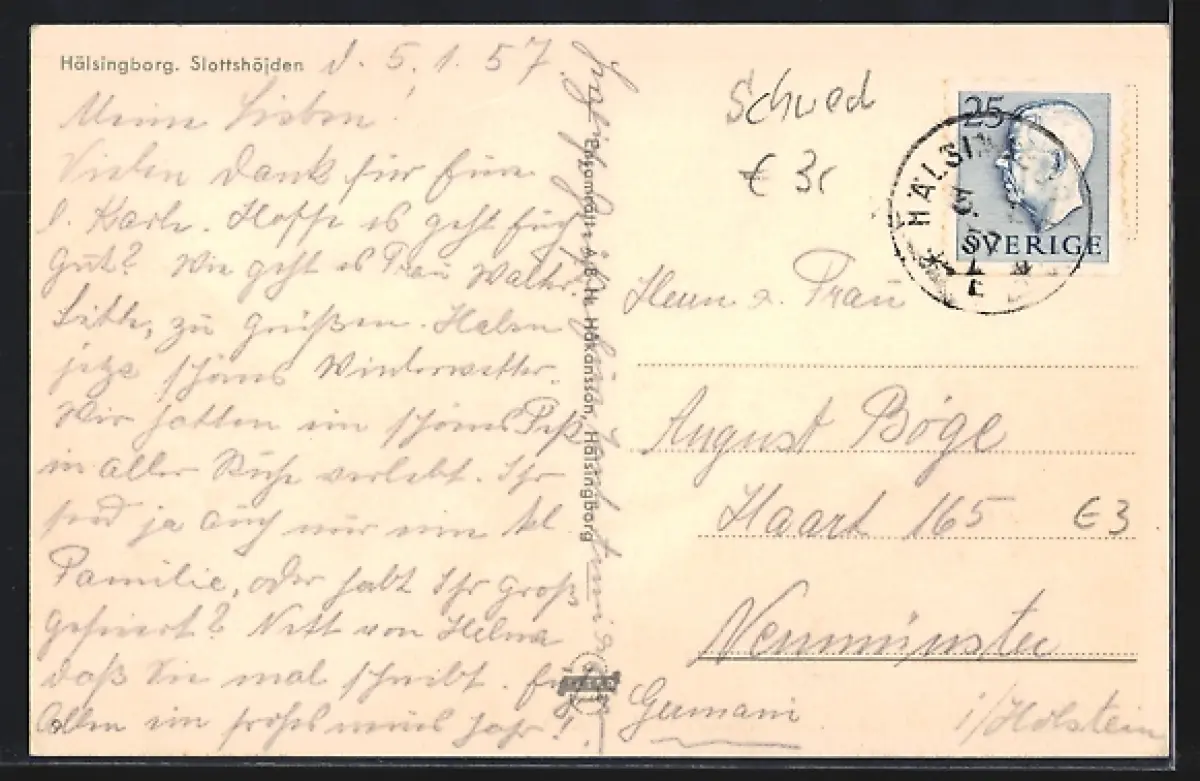 Hälsingborg. Slottshöjden d. 5.1.57
Meine Lieben!
Vielen Dank für Eure
l. Karte. Hoffe es geht Euch
Gut? Wie geht es Frau Walter.
Bitte, zu grüßen. Haben
jetzt schönes Winterwetter.
Wir hatten ein schönes Fest
in aller Ruhe verlebt. Ihr
seid ja auch nur eine kl
Familie, oder habt Ihr Groß
gefeiert? Nett von Helma
daß Sie mal schreibt. Euch
Allen ein frohes neues Jahr!
Ensamrätt A.B. H. Håkansson, Hälsingborg
Schwed
€ 3,
25
SVERIGE
HÄLSIN
Herrn u. Frau
August Böge
Haart 165
€ 3
Neumünster
i/Holstein
Germani